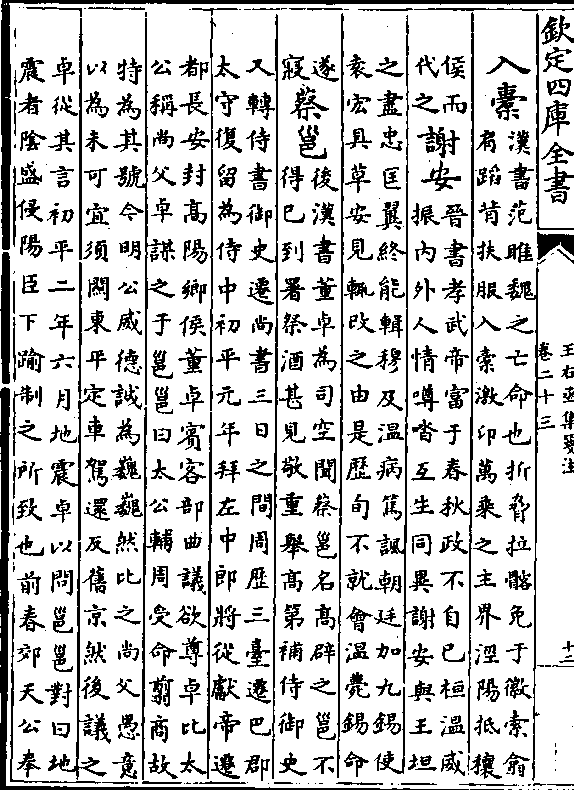 欽定四庫全書
王右丞集箋注
卷二十三
十二
入橐
漢書范雎魏之亡命也折脅拉髂免于徽索翕
肩蹈背扶服入橐激卬萬乗之主界涇陽抵穰
侯而
代之
謝安
晉書孝武帝富于春秋政不自已桓温威
振内外人情噂喈互生同異謝安與王坦
之盡忠匡翼終能輯穆及温病篤諷朝廷加九錫使
袁宏具草安見輒改之由是歴旬不就會温薨錫命
遂
寢
蔡邕
後漢書董卓為司空聞蔡邕名髙辟之邕不
得已到署祭酒甚見敬重舉髙第補侍御史
又轉侍書御史遷尚書三日之間周歴三臺遷巴郡
太守復留為侍中初平元年拜左中郎將從獻帝遷
都長安封髙陽鄉侯董卓賓客部曲議欲尊卓比太
公稱尚父卓謀之于邕邕曰太公輔周受命翦商故
特為其號今明公威德誠為巍巍然比之尚父愚意
以為未可宜須關東平定車駕還反舊京然後議之
卓從其言初平二年六月地震卓以問邕邕對曰地
震者陰盛侵陽臣下踰制之所致也前春郊天公奉